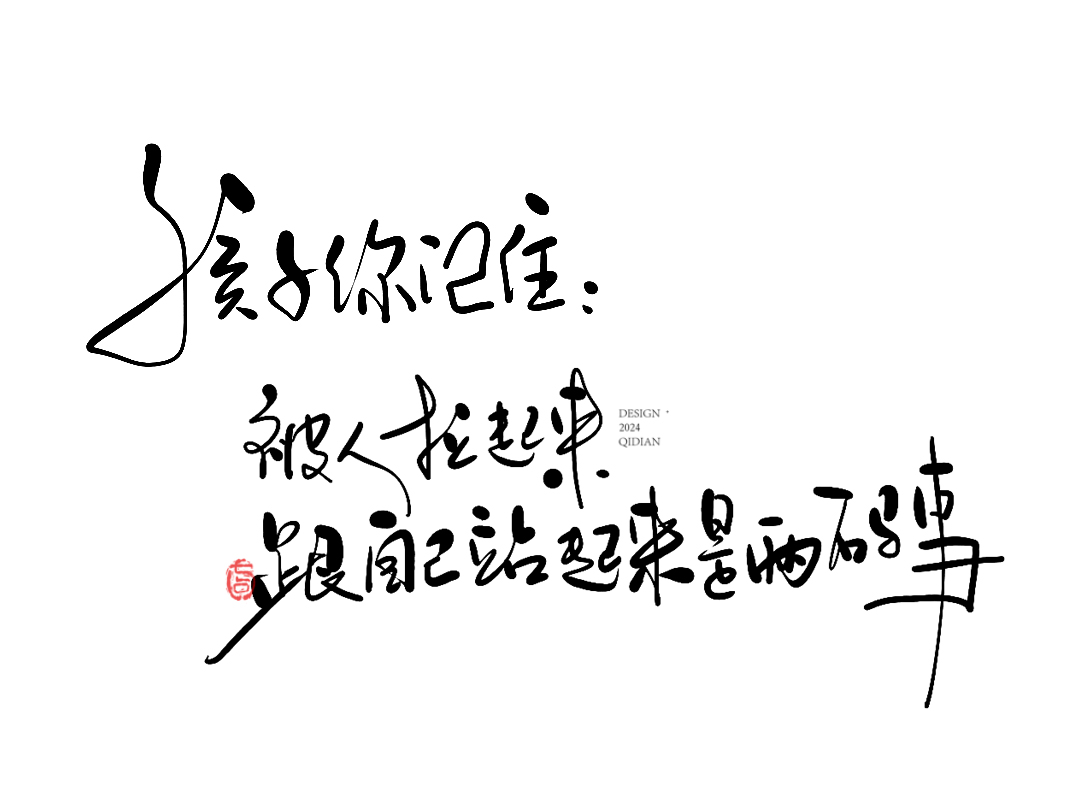 孩子你记住：
被人拉起来
DESIGN
2024
QIDIAN
跟自己站起来是两码事